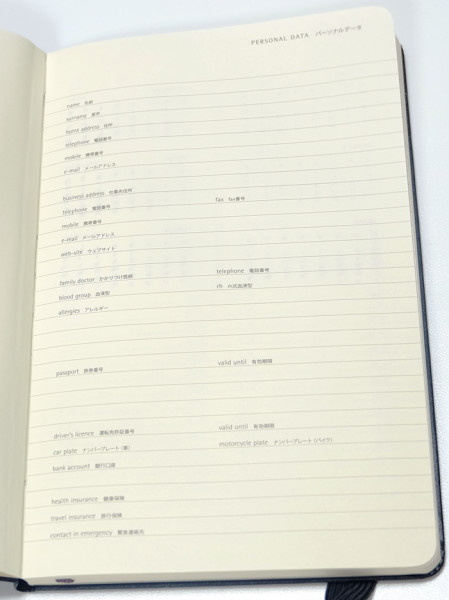 PERSONAL DATA パーソナルデータ
name 名前
surname 苗字
home address 住所
telephone 電話番号
mobile 携帯番号
e-mail メールアドレス
business address 仕事先住所
telephone 電話番号 fax fax番号
mobile 携帯番号
e-mail メールアドレス
web-site ウェブサイト
family doctor かかりつけ医師 telephone 電話番号
blood group 血液型 rh Rh式血液型
allergies アレルギー
passport 旅券番号 valid until 有効期限
driver's licence 運転免許証番号 valid until 有効期限
car plate ナンバープレート (車) motorcycle plate ナンバープレート (バイク)
bank account 銀行口座
health insurance 健康保険
travel insurance 旅行保険
contact in emergency 緊急連絡先